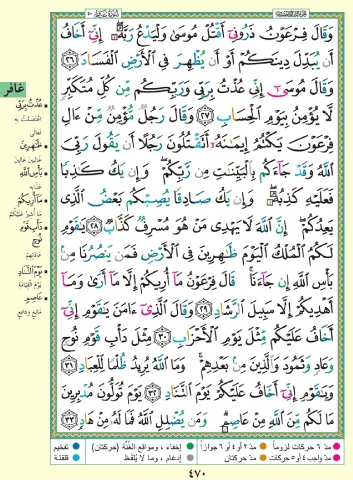 وَقَالَ فِرْعَوْنُ ذَرُونِىٓ أَقْتُلْ مُوسَىٰ وَلْيَدْعُ رَبَّهُۥٓ ۖ إِنِّىٓ أَخَافُ
أَن يُبَدِّلَ دِينَكُمْ أَوْ أَن يُظْهِرَ فِى ٱلْأَرْضِ ٱلْفَسَادَ ٢٦
وَقَالَ مُوسَىٰٓ إِنِّى عُذْتُ بِرَبِّى وَرَبِّكُم مِّن كُلِّ مُتَكَبِّرٍ
لَّا يُؤْمِنُ بِيَوْمِ ٱلْحِسَابِ ٢٧ وَقَالَ رَجُلٌ مُّؤْمِنٌ مِّنْ ءَالِ
فِرْعَوْنَ يَكْتُمُ إِيمَـٰنَهُۥٓ أَتَقْتُلُونَ رَجُلًا أَن يَقُولَ رَبِّىَ
ٱللَّهُ وَقَدْ جَآءَكُم بِٱلْبَيِّنَـٰتِ مِن رَّبِّكُمْ ۖ وَإِن يَكُ كَـٰذِبًا
فَعَلَيْهِ كَذِبُهُۥ ۖ وَإِن يَكُ صَادِقًا يُصِبْكُم بَعْضُ ٱلَّذِى
يَعِدُكُمْ ۖ إِنَّ ٱللَّهَ لَا يَهْدِى مَنْ هُوَ مُسْرِفٌ كَذَّابٌ ٢٨ يَـٰقَوْمِ
لَكُمُ ٱلْمُلْكُ ٱلْيَوْمَ ظَـٰهِرِينَ فِى ٱلْأَرْضِ فَمَن يَنصُرُنَا مِنۢ
بَأْسِ ٱللَّهِ إِن جَآءَنَا ۚ قَالَ فِرْعَوْنُ مَآ أُرِيكُمْ إِلَّا مَآ أَرَىٰ وَمَآ
أَهْدِيكُمْ إِلَّا سَبِيلَ ٱلرَّشَادِ ٢٩ وَقَالَ ٱلَّذِىٓ ءَامَنَ يَـٰقَوْمِ إِنِّىٓ
أَخَافُ عَلَيْكُم مِّثْلَ يَوْمِ ٱلْأَحْزَابِ ٣٠ مِثْلَ دَأْبِ قَوْمِ نُوحٍ
وَعَادٍ وَثَمُودَ وَٱلَّذِينَ مِنۢ بَعْدِهِمْ ۚ وَمَا ٱللَّهُ يُرِيدُ ظُلْمًا لِّلْعِبَادِ ٣١
وَيَـٰقَوْمِ إِنِّىٓ أَخَافُ عَلَيْكُمْ يَوْمَ ٱلتَّنَادِ ٣٢ يَوْمَ تُوَلُّونَ مُدْبِرِينَ
مَا لَكُم مِّنَ ٱللَّهِ مِنْ عَاصِمٍ ۗ وَمَن يُضْلِلِ ٱللَّهُ فَمَا لَهُۥ مِنْ هَادٍ ٣٣
غافر
عُذْتُ بِرَبِّي
اعْتَصَمْتُ به
تعالى
ظَاهِرِينَ
غالبين عالين
بَأْسِ اللَّهِ
عذابه
مَا أُرِيكُمْ
ما أشير عليكم
دَأْبِ قَوْمِ نُوحٍ
عادتهم
يَوْمَ التَّنَادِ
يوم القيامة
عَاصِمٍ
مانع ودافع
مدّ ٦ حركات لزوماً
مدّ ٢ أو ٤ أو ٦ جوازاً
إخفاء، ومواقع الغُنَّة (حركتان)
تفخيم
مدّ واجب ٤ أو ٥ حركات
مدّ حركتان
إدغام، وما لا يُلفَظ
قلقلة
٤٧٠